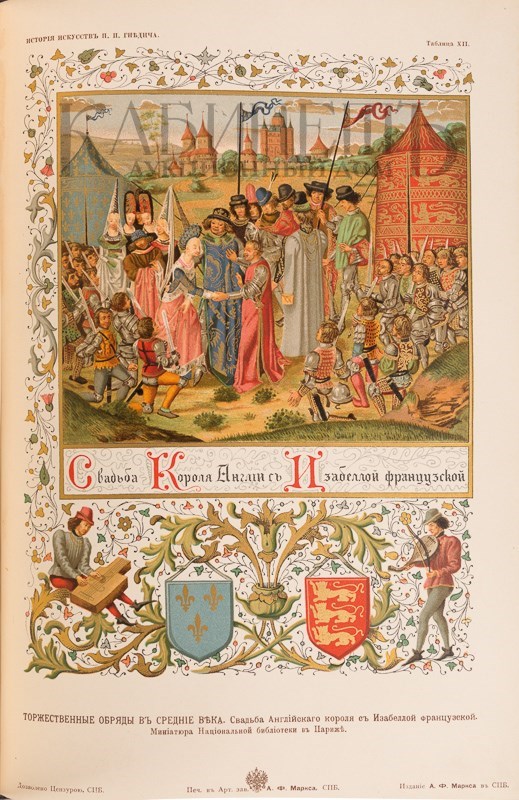 ИСТОРІЯ ИСКУССТВЪ П. П. ГНѢДИЧА.
Таблица XII.
КАБИНЕТЪ
АУКЦИОННЫЙ ДОМ
Свадьба Короля Англіи съ Изабеллой французской
ТОРЖЕСТВЕННЫЕ ОБРЯДЫ ВЪ СРЕДНІЕ ВѢКА. Свадьба Англійскаго короля съ Изабеллой французской.
Миніатюра Національной библіотеки въ Парижѣ.
Дозволено Цензурою, СПБ.
Печ. в Арт. зав. А. Ф. Маркса, СПБ.
Изданіе А. Ф. Маркса въ СПБ.